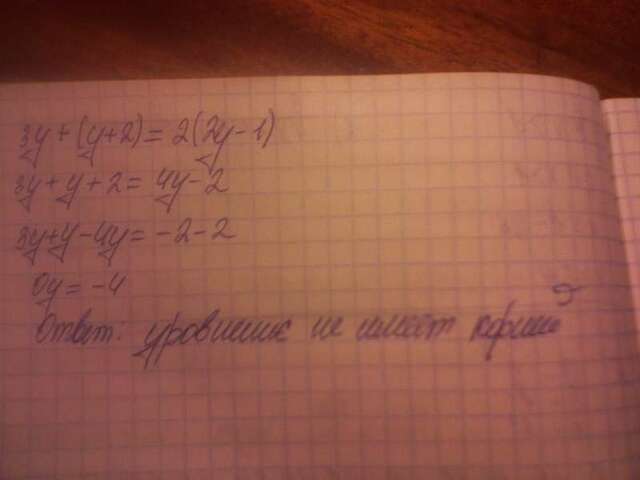 3y+(y+2)=2(2y-1)
3y+y+2=4y-2
3y+y-4y=-2-2
0y=-4
Ответ: уровнение не имеет корней